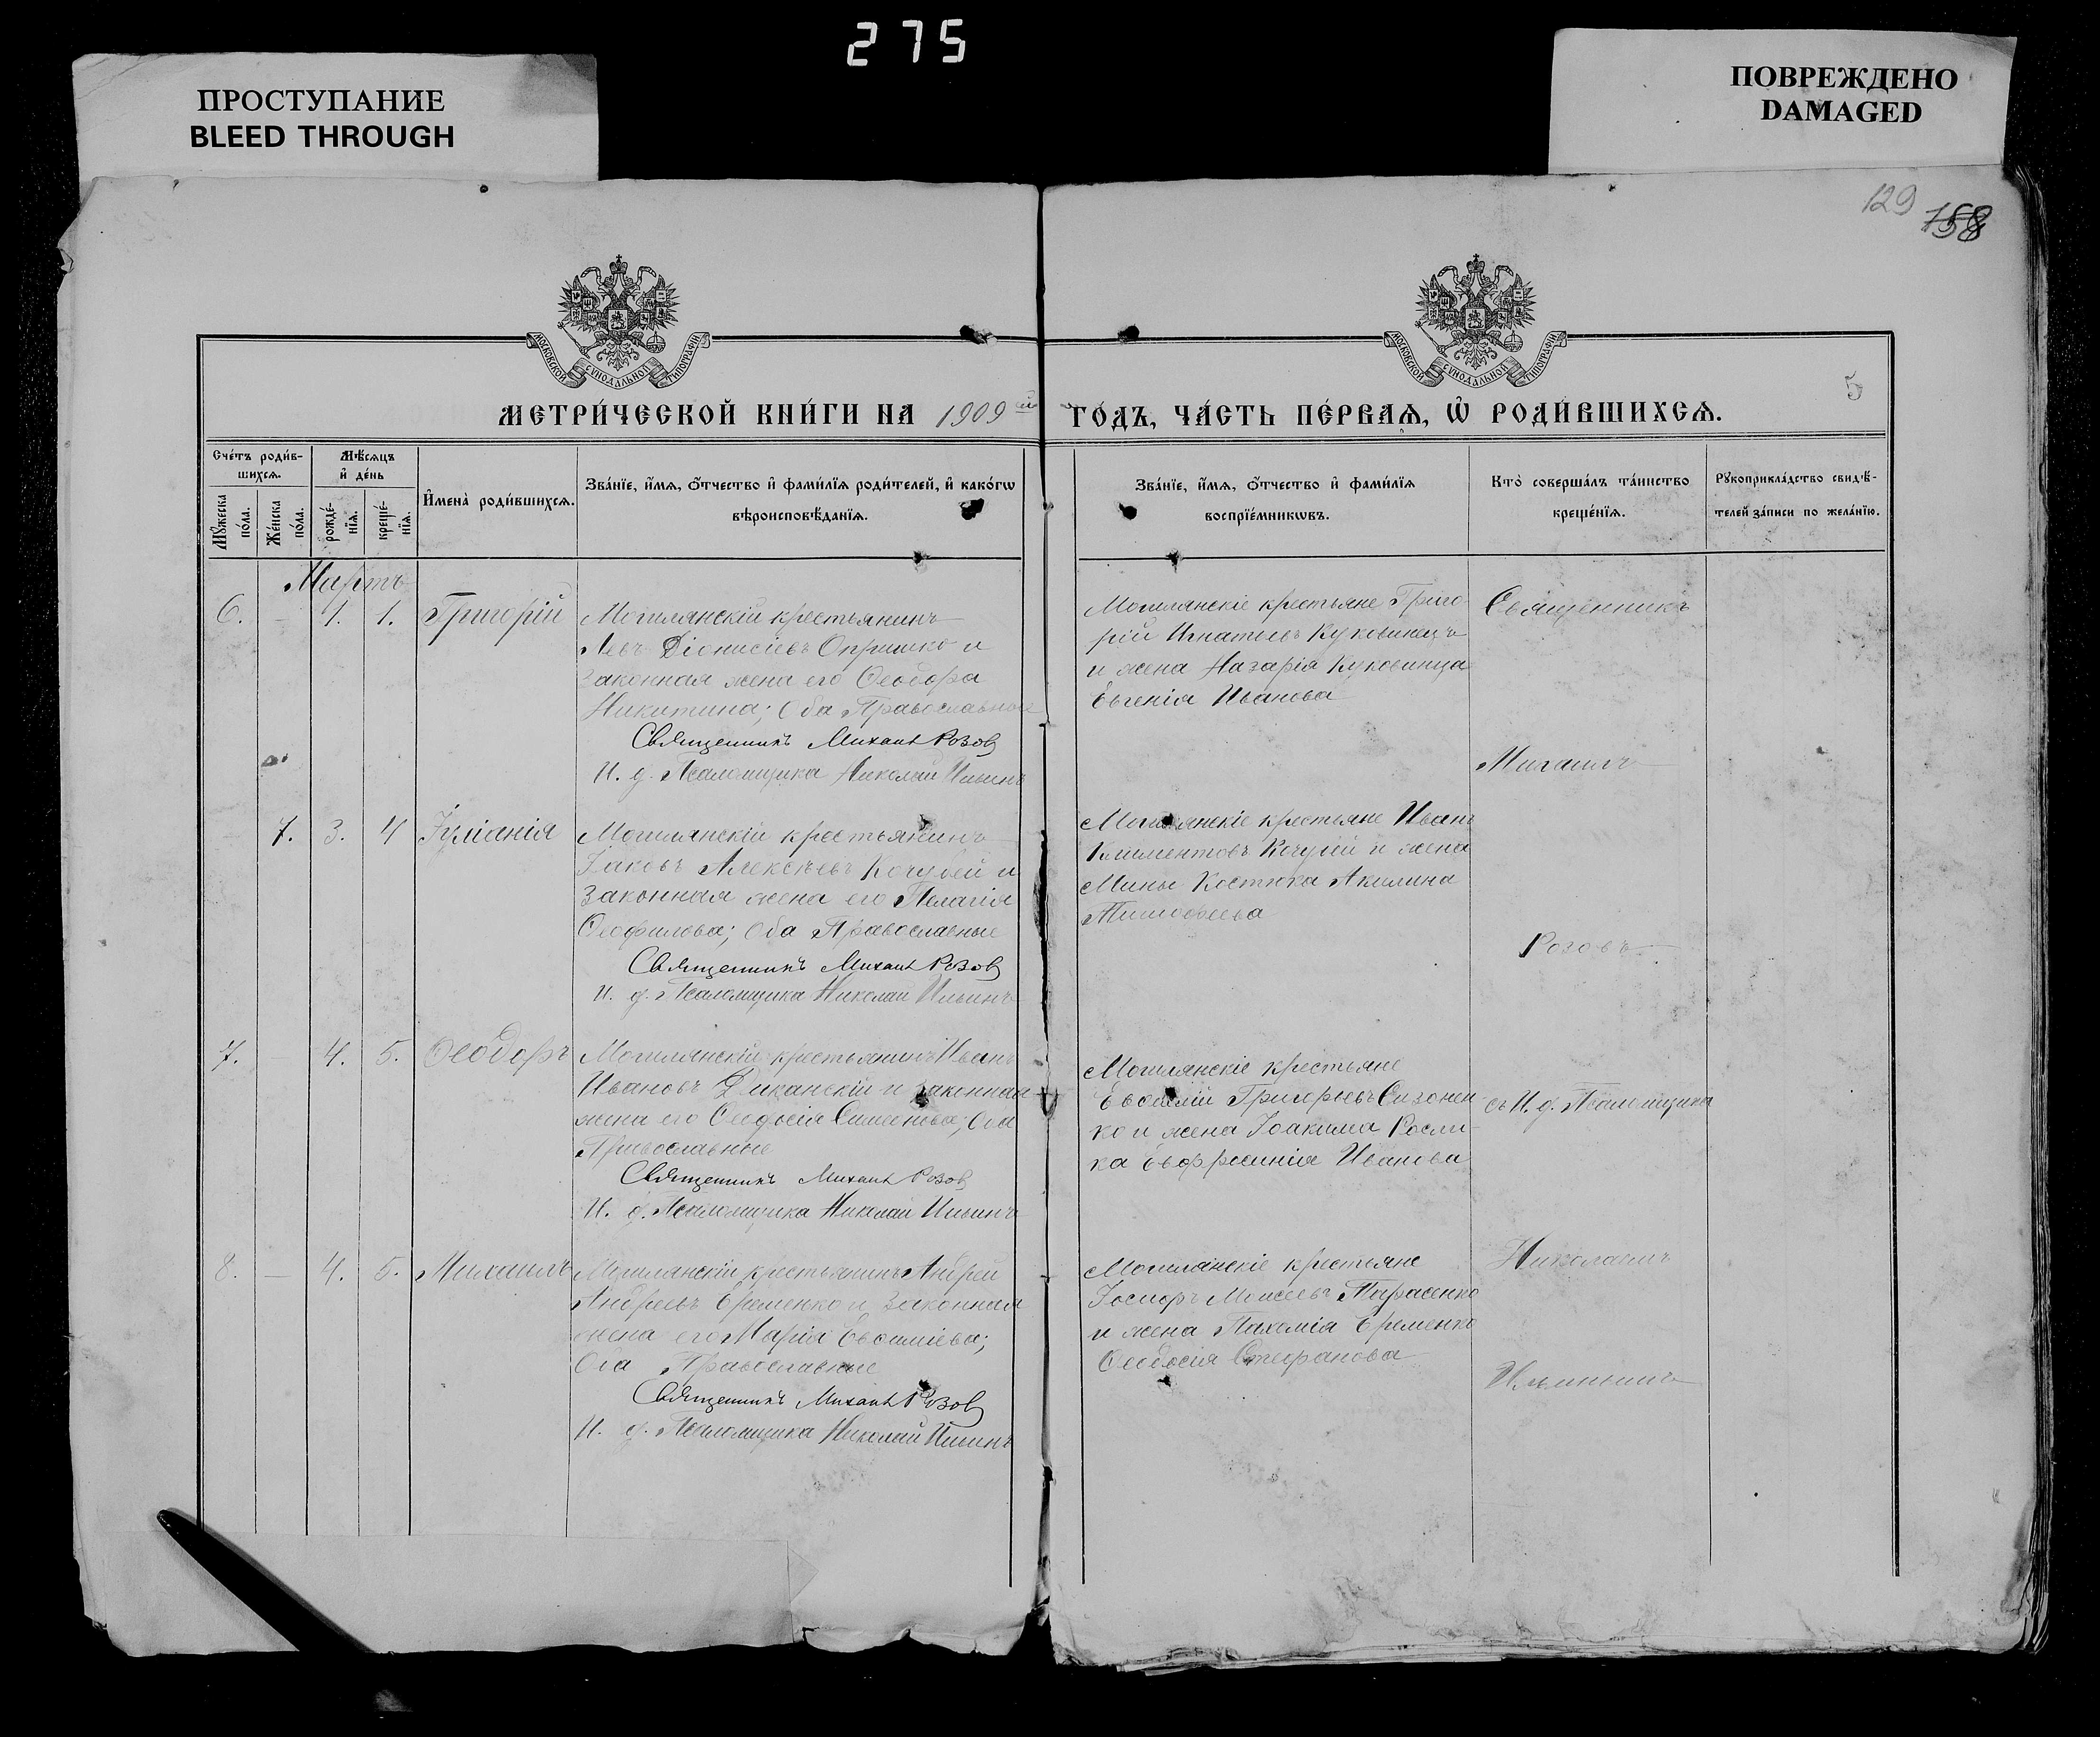 275
ПРОСТУПАНИЕ
BLEED THROUGH
ПОВРЕЖДЕНО
DAMAGED
129
158
МОСКОВСКОЙ СУНОДАЛЬНОЙ ТИПОГРАФІИ
МОСКОВСКОЙ СУНОДАЛЬНОЙ ТИПОГРАФІИ
5
МЕТРИ́ЧЕСКОЙ КНИ́ГИ НА 1909 ий ГО́ДЪ, ЧА́СТЬ ПЕ́РВАѦ, Ѡ РОДИ́ВШИХСѦ.
Сче́тъ роди́в-
шихсѧ.
Мѣ́сѧцъ
и де́нь
Мꙋ́жеска
по́ла.
Же́нска
по́ла.
рожде́-
нїѧ.
креще́-
нїѧ.
Имена̀ роди́вшихсѧ.
Зва́нїе, и́мѧ, ѻ́тчество и фами́лїѧ роди́телей, и како́гѡ
вѣроисповѣ́данїѧ.
Зва́нїе, и́мѧ, ѻ́тчество и фами́лїѧ
воспрїе́мникѡвъ.
Кто̀ соверша́лъ та́инство
креще́нїѧ.
Рꙋкоприкла́дство свидѣ́-
телей за́писи по жела́нїю.
Мартъ
6. - 1. 1. Григорій
Могилянскій крестьянинъ
Левъ Діонисіевъ Опришко и
законная жена его Ѳеодора
Никитина; Оба Православные
Священникъ Михаил Розов
И. д. Псаломщика Николай Ильинъ
Могилянскіе крестьяне Григо-
рій Игнатьевъ Куковинецъ
и жена Назарія Куковинца
Евгенія Иванова
Священникъ
Михаилъ
7. 3. 4 Іуліанія
Могилянскій крестьянинъ
Іаковъ Алексѣевъ Кочубей и
законная жена его Пелагія
Ѳеофилова; Оба Православные
Священникъ Михаил Розов
И. д. Псаломщика Николай Ильинъ
Могилянскіе крестьяне Иванъ
Климентовъ и жена
Мины Костюка Акилина
Тимоѳеева
Розовъ
7. - 4. 5. Ѳеодоръ
Могилянскій крестьянинъ Иванъ
Ивановъ Диканскій и законная
жена его Ѳеодосія Симеонова; Оба
Православные
Священникъ Михаил Розов
И. д. Псаломщика Николай Ильинъ
Могилянскіе крестьяне
Евѳимій Григорьевъ Сизонен-
ко и жена Іоакима
Евфросинія Иванова
съ И. д. Псаломщика
8. - 4. 5. Михаилъ
Могилянскій крестьянинъ Андрей
Андреевъ Еременко и законная
жена его Марія Евѳиміева;
Оба Православные
Священникъ Михаил Розов
И. д. Псаломщика Николай Ильинъ
Могилянскіе крестьяне
Іосифъ Моисеевъ Тарасенко
и жена Пахомія Еременко
Ѳеодосія Стефанова
Николаемъ
Ильинымъ